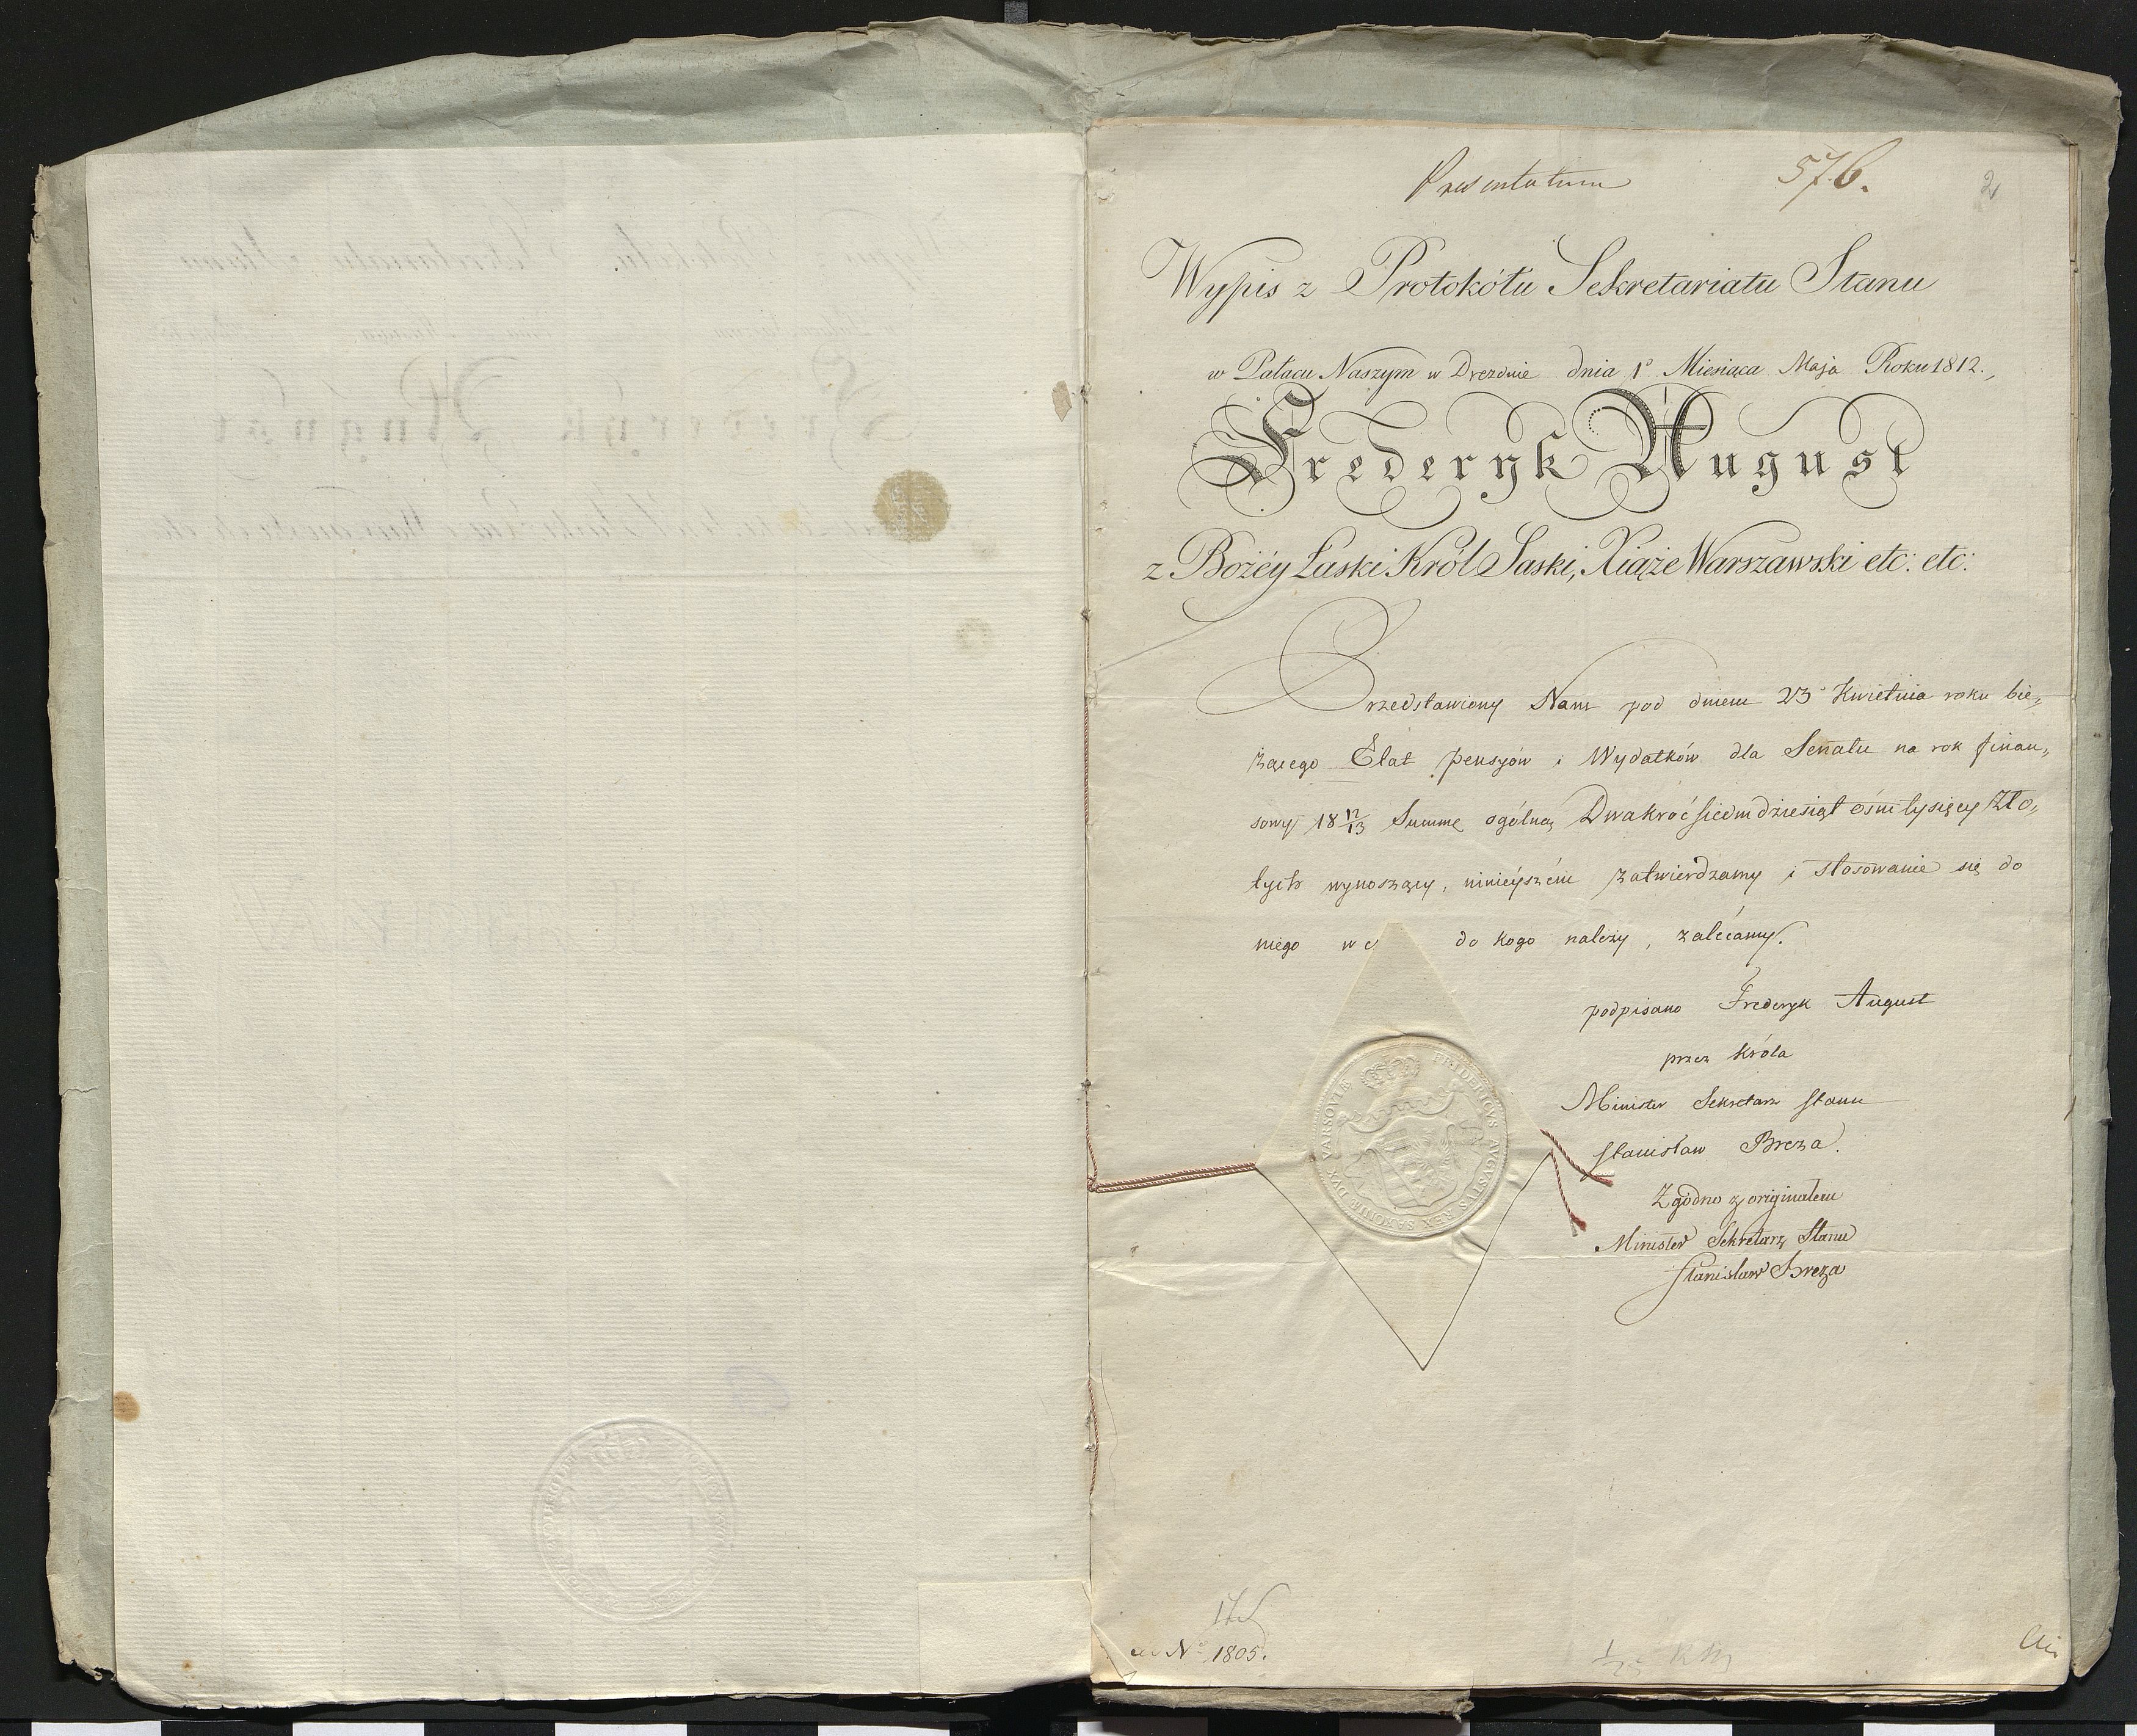 Presentatum 576. 2
Wypis z Protokółu Sekretariatu Stanu
w Pałacu Naszym w Dreznie dnia 1° Miesiąca Maja Roku 1812.
Frederyk August
z Bożéy Łaski Król Saski, Xiąże Warszawski etc: etc:
Przedstawiony Nam pod dniem 23° Kwietnia roku bie„
żącego Etat pensyów i Wydatków dla Senatu na rok finan„
sowy 18 12/13 Summę ogólną Dwakroć siedmdziesiąt ośm tysięcy Zło„
tych wynoszący, ninieyszém zatwierdzamy i stosowanie się do
niego w c do kogo należy, zalécamy.
podpisano Frederyk August
przez Króla
Minister Sekretarz Stanu
Stanisław Breza.
Zgodno z originałem
Minister Sekretarz Stanu
Stanisław Breza
FRIDERICVS AVGVSTVS REX SAXONIÆ DVX VARSOVIÆ
N° 1805.